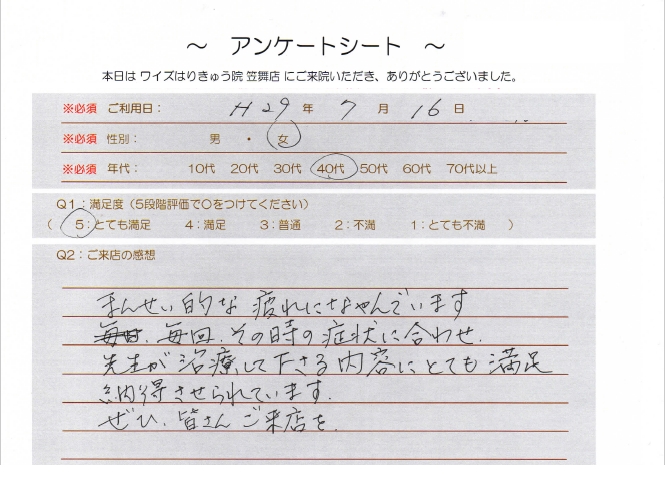 ～ アンケートシート ～
本日は ワイズはりきゅう院 笠舞店 にご来院いただき、ありがとうございました。
※必須 ご利用日： H29 年 7 月 16 日
※必須 性別： 男 ・ 女
※必須 年代： 10代 20代 30代 40代 50代 60代 70代以上
Q1：満足度（5段階評価で〇をつけてください）
（ 5：とても満足 4：満足 3：普通 2：不満 1：とても不満 ）
Q2：ご来店の感想
まんせい的な疲れになやんでいます
毎回、その時の症状に合わせ、
先生が治療して下さる内容にとても満足
納得させられています。
ぜひ、皆さんご来店を。